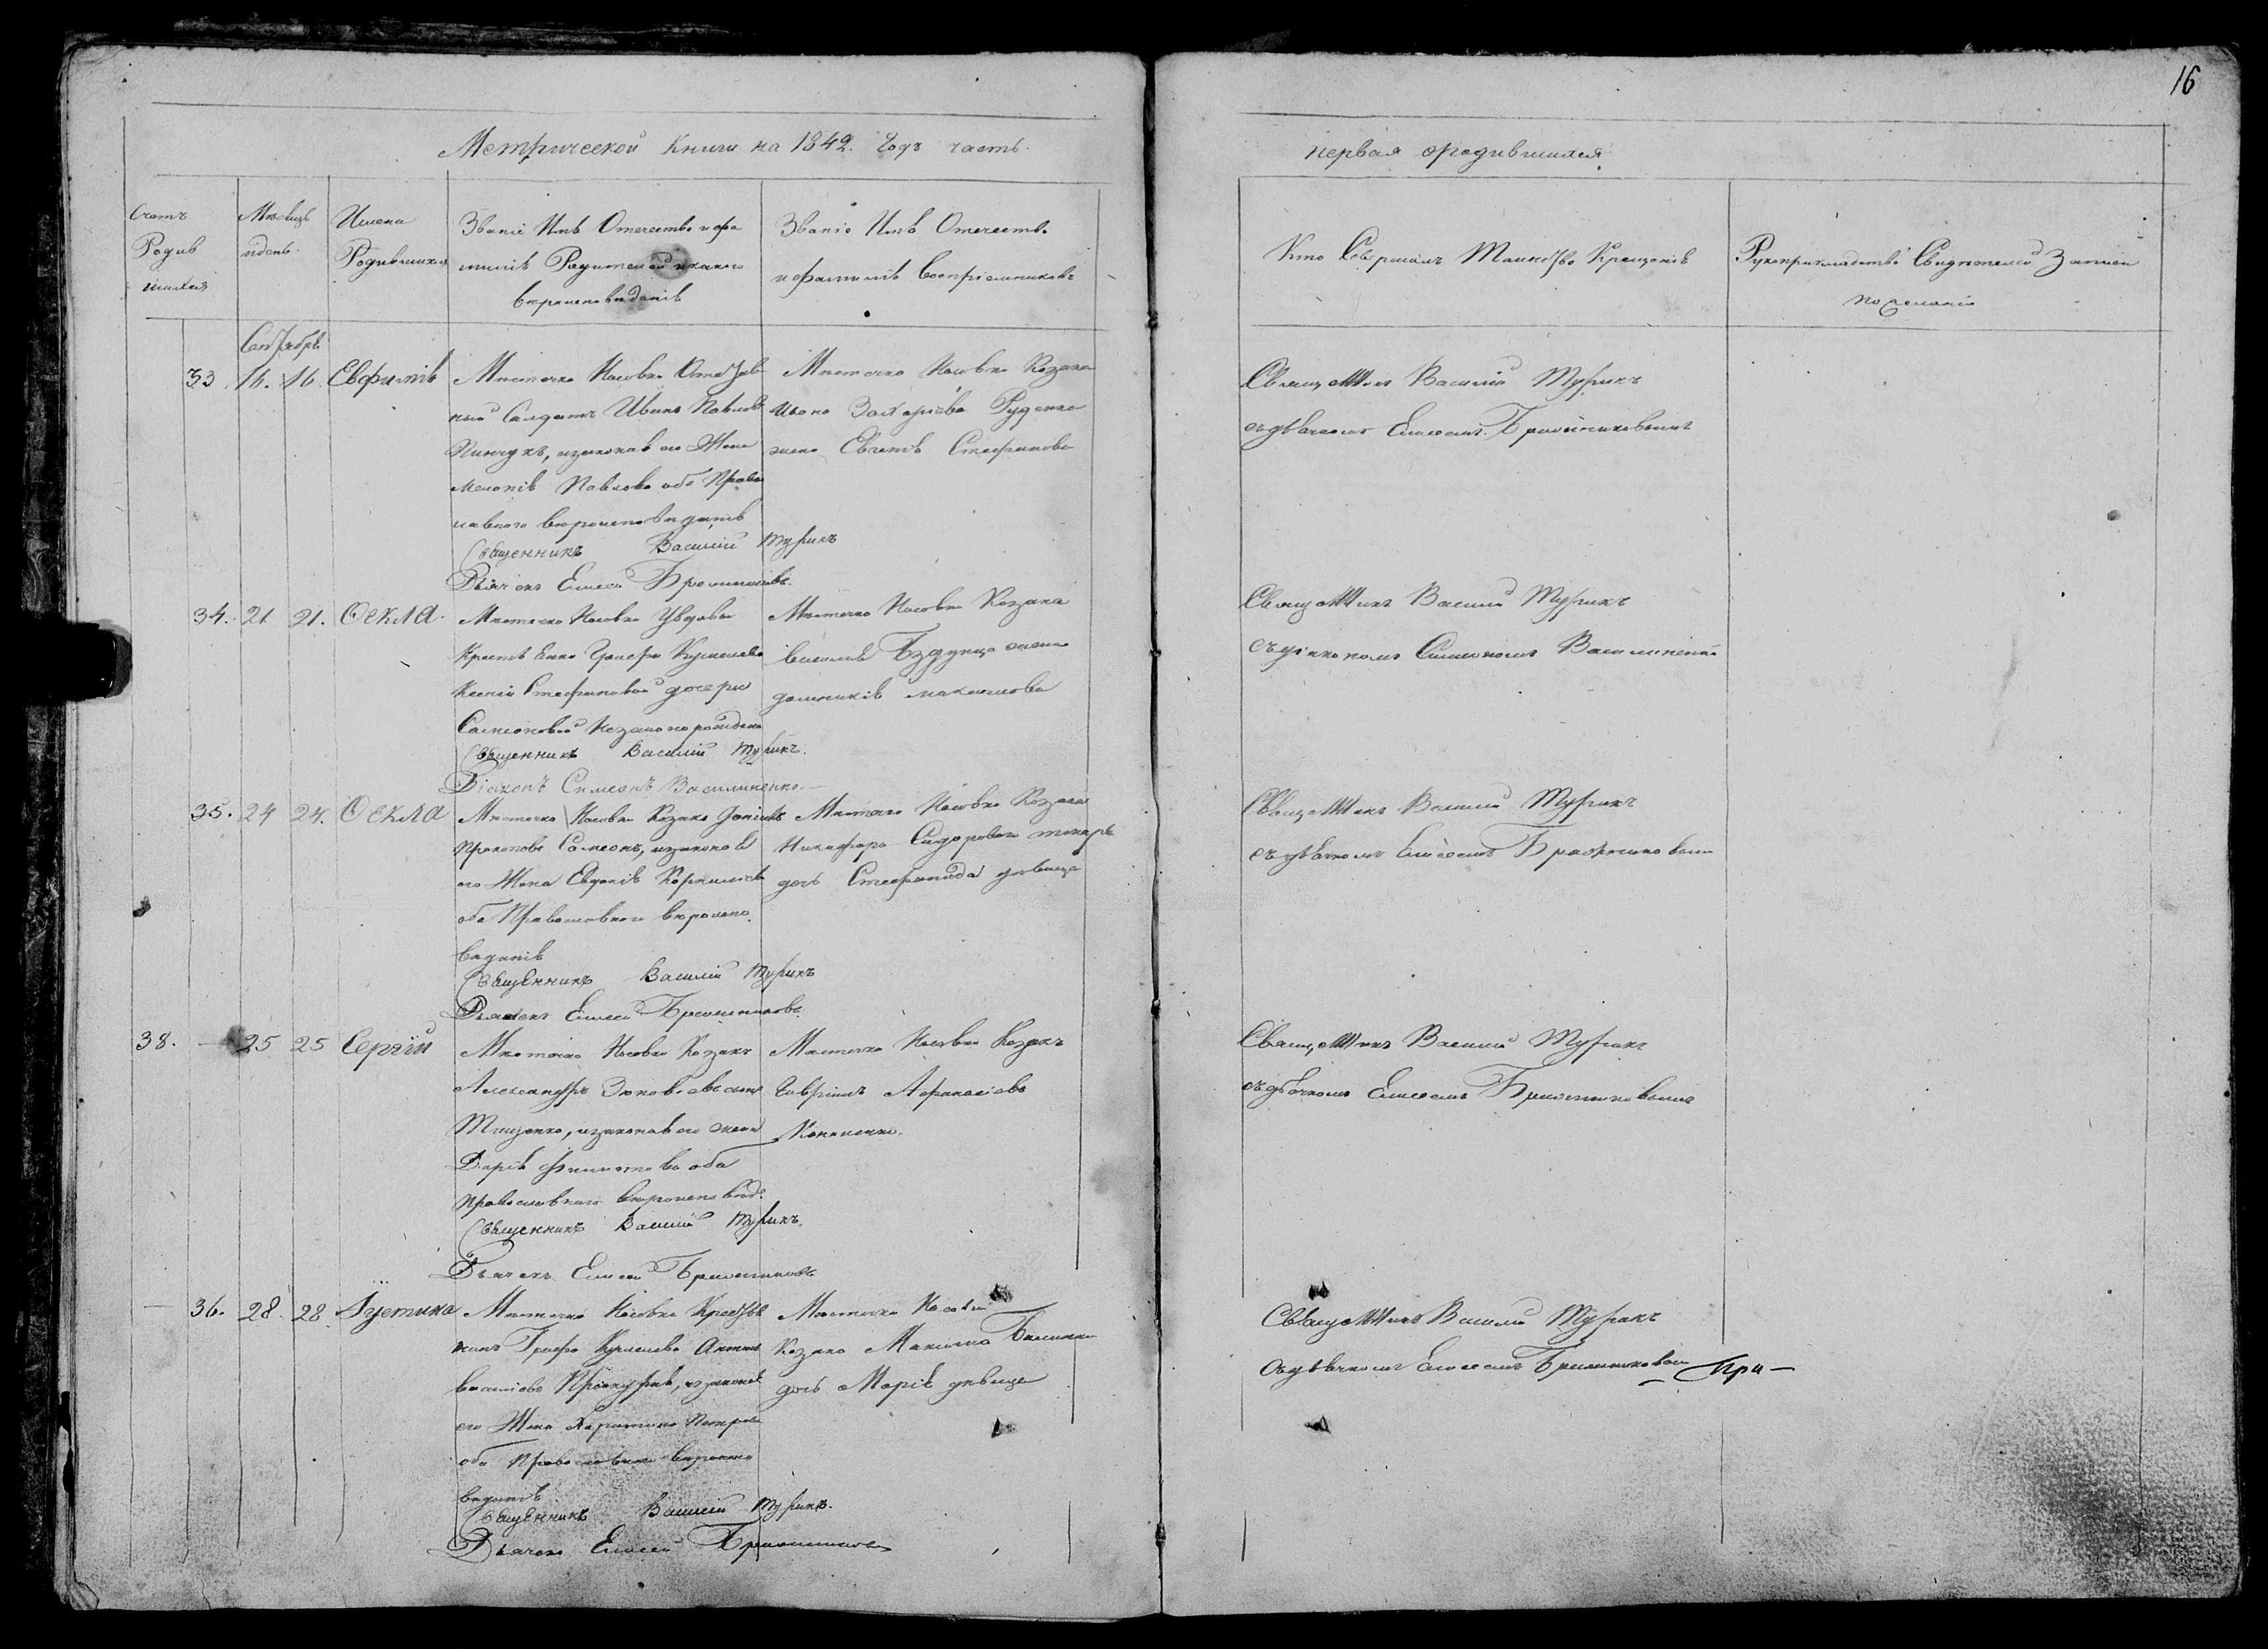 16
Метрической Книги на 1842. Годъ часть
первая ородившихся
Счетъ
Родив
шихся
Мѣсяцъ
идень
Имена
Родившихся
Званіе Имя Отечество ифа
милія Родителей икакого
вѣроисповѣданія
Званіе Имя Отечество
ифамилія Воспріемниковъ
Кто Совершалъ Таинство Крещенія
Рукоприкладство Свидѣтелей Записи
по желанію
Сентября
33 16. 16 Евфимія
Мѣстечка Носовки Отстав
ный Салдатъ Иванъ Павловъ
Пинчукъ, изаконая его Жена
Меланія Павлова оба Правос
лавного вѣроисповѣданія
Священникъ Василій Турикъ
Дьячекъ Елисей
Мѣстечка Носовки Козака
Ивана Захаріева Руденка
жена Стефанова
Священникъ Василій Турикъ
съдьячкомъ Елисеемъ
34. 21 21. Ѳекла
Мѣстечка Носовки Удовы
Графа Кушелева
Ксеніи Стефановой дочери
Самсоновой незаконорождена
Священникъ Василій Турикъ.
Діаконъ Симеонъ Василиненко.
Мѣстечка Носовки Козака
Василія Бздунца жена
Максимова
Священникъ Василій Турикъ
съдіакономъ Симеономъ Василиненко
35. 24 24. Ѳекла
Мѣстечка Носовки Козакъ
Прокоповъ Самсонъ, изаконая
его Жена Евдокія Корнилова
оба Православного вѣроиспо
веданія
Священникъ Василій Турикъ
Дьячекъ Елисей
Мѣстечка Носовки Козака
Никифора Сидорова
дочь Стефанида дѣвица
Священникъ Василій Турикъ
съдьячкомъ Елисеемъ
38. 25 25 Сергій
Мѣстечка Носовки Козакъ
Александръ Зиновьевъ сынъ
Тищенко, изаконая его жена
Дарія Филипова оба
православного вѣроисповѣд
Священникъ Василій Турикъ.
Дьячекъ Елисей
Мѣстечка Носовки Козакъ
Гавріилъ Афанасіевъ
Кононенко.
Священникъ Василій Турикъ
съдьячкомъ Елисеемъ
36. 28 28 Іустина
Мѣстечка Носовки Крестья
нинъ Графа Кушелева Антонъ
изаконая
его Жена Харитина Петрова
оба Православного вѣроиспо
веданія
Священникъ Василій Турикъ.
Дьячекъ Елисей
Мѣстечка Носовки
Козака Максима
дочь Марія дѣвица
Священникъ Василій Турикъ
съдьячкомъ Елисеемъ
при